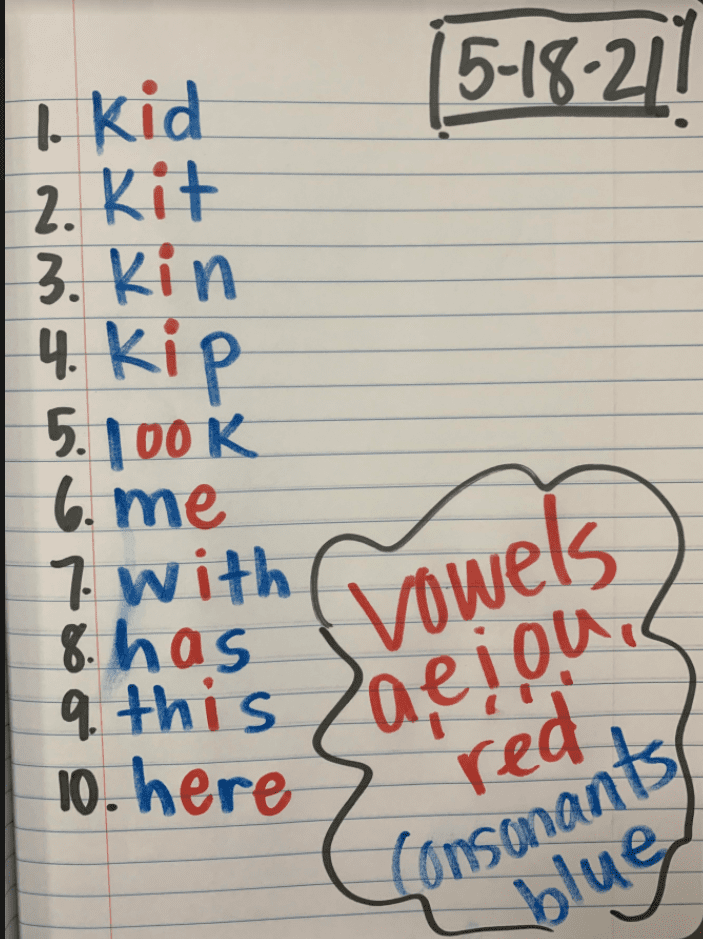 5-18-21
1. kid
2. kit
3. kin
4. kip
5. look
6. me
7. with
8. has
9. this
10. here
vowels
a, e, i, o, u,
red
Consonants
blue